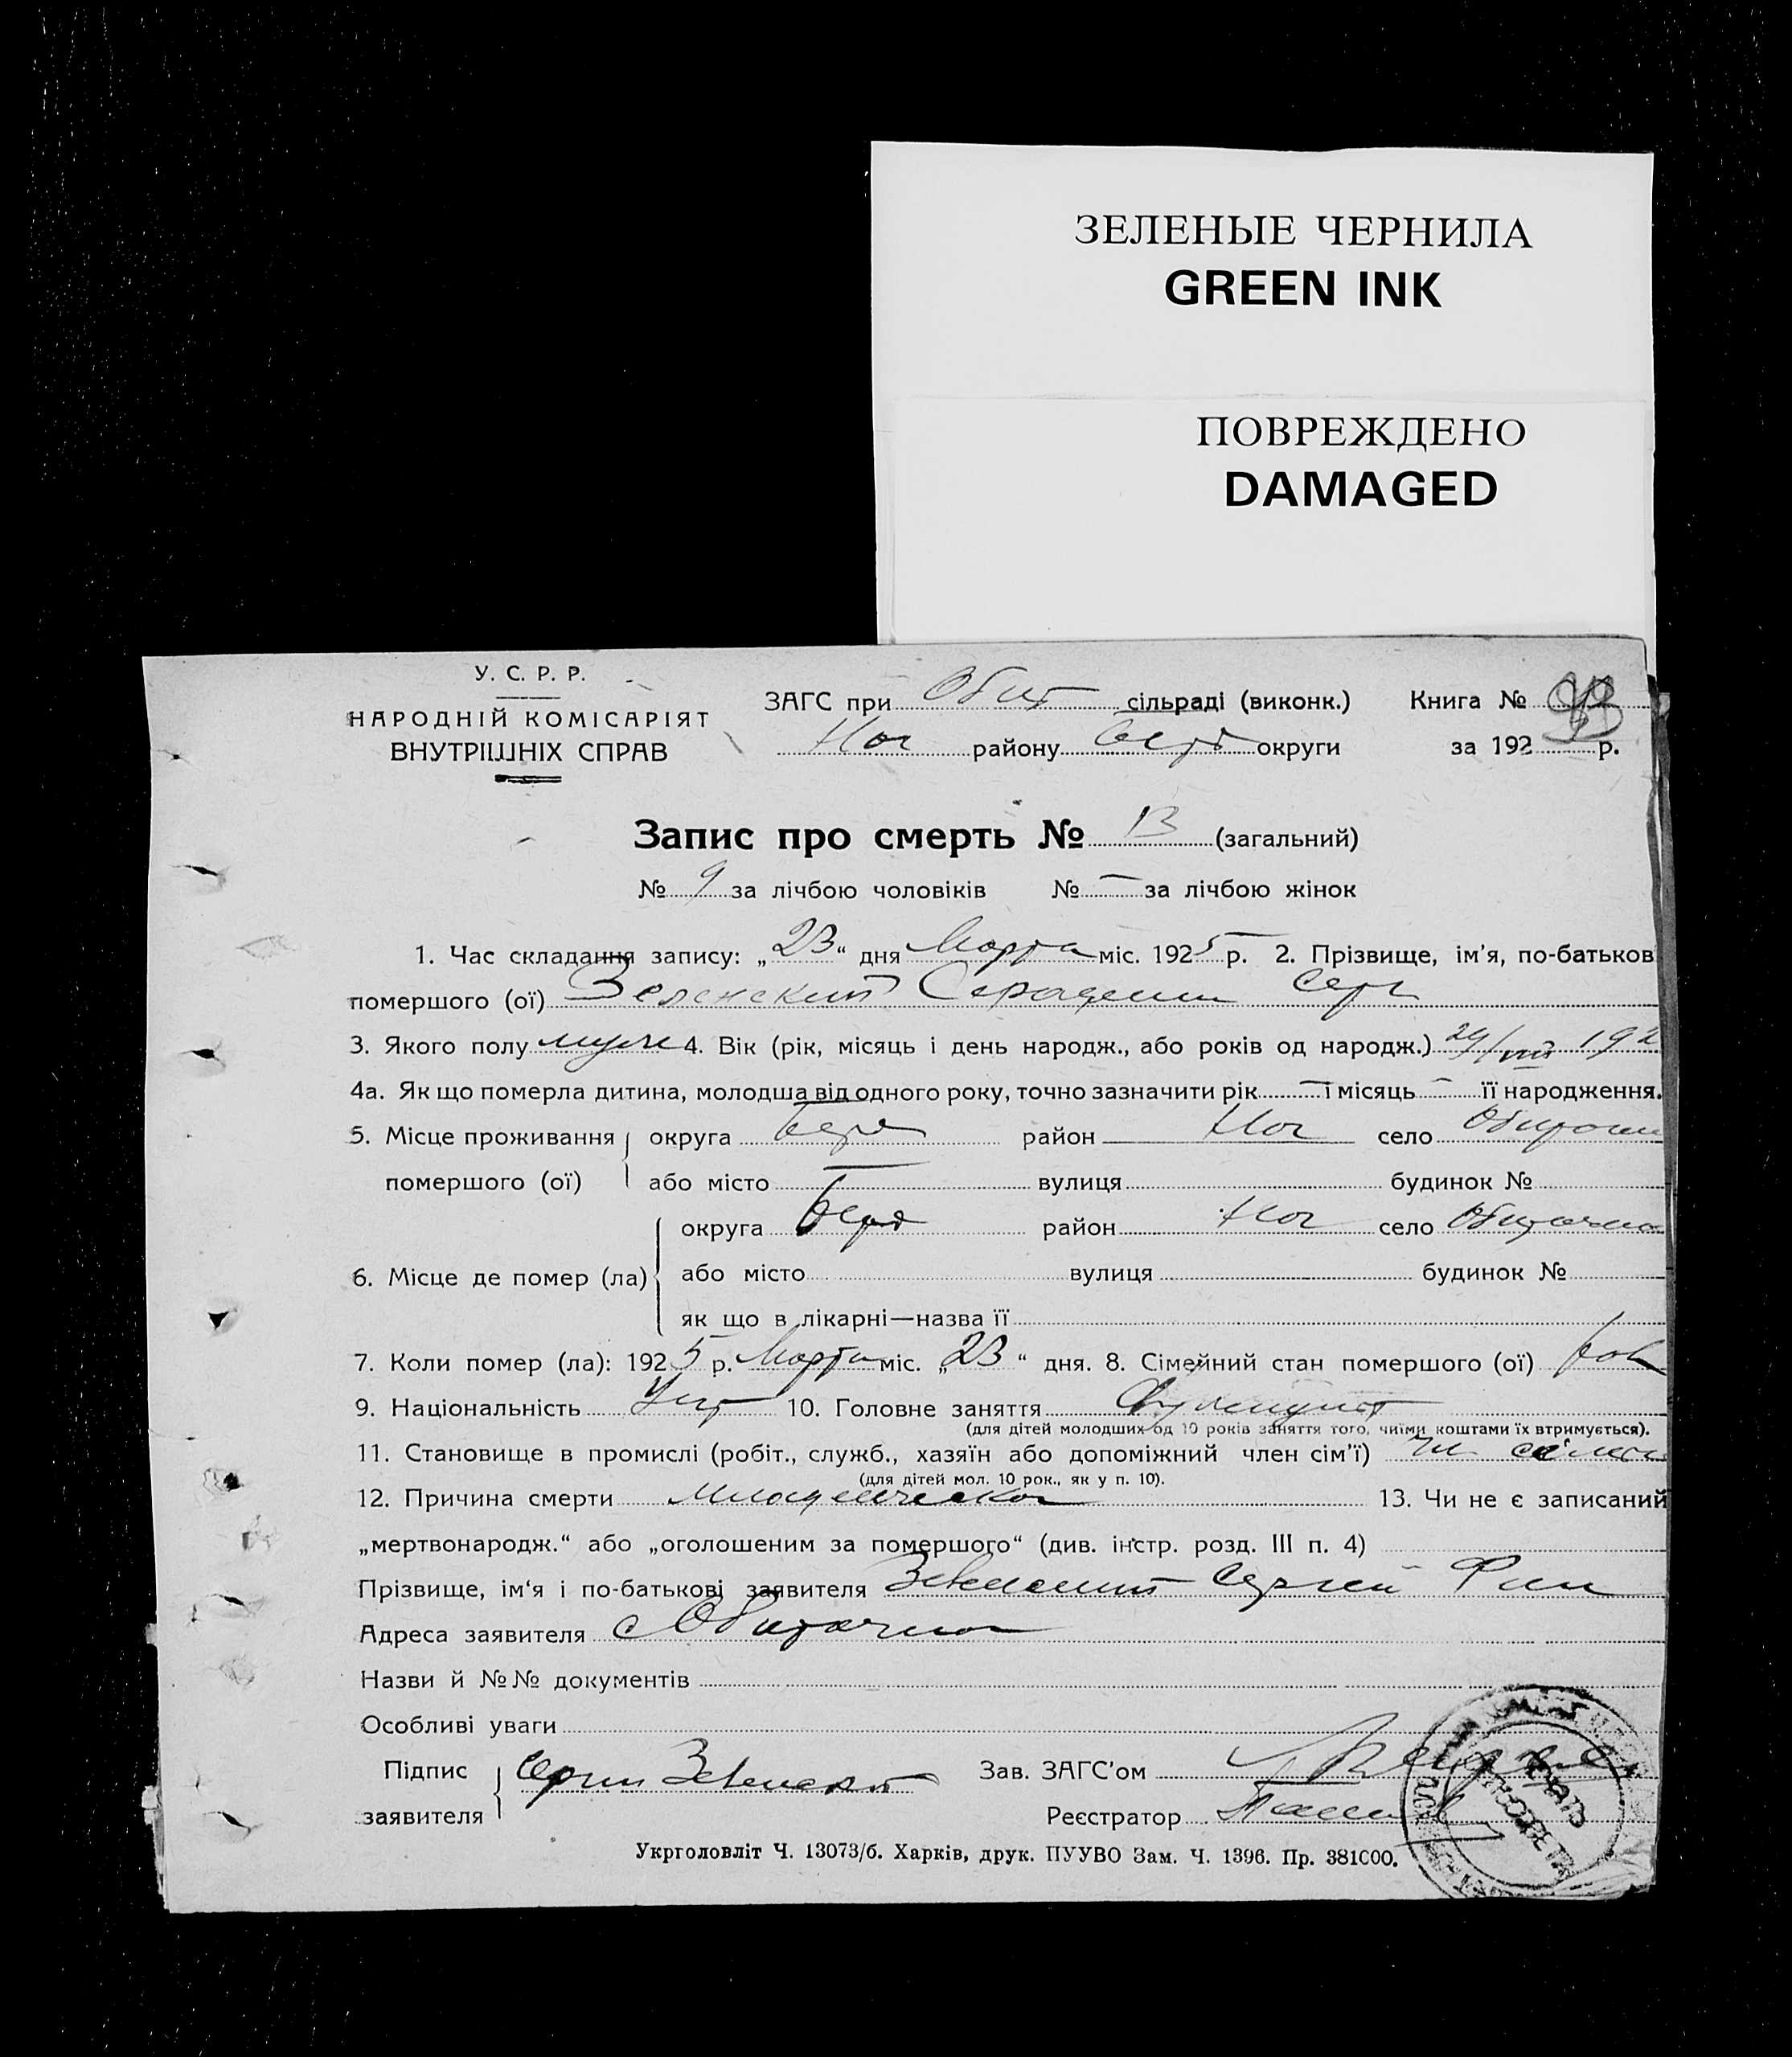 ЗЕЛЕНЫЕ ЧЕРНИЛА
GREEN INK
ПОВРЕЖДЕНО
DAMAGED
У. С. Р. Р.
НАРОДНІЙ КОМІСАРІЯТ
ВНУТРІШНІХ СПРАВ
ЗАГС при Обит сільраді (виконк.) Книга №
Ног району Берд округи за 192 р.
Запис про смерть № 13 (загальний)
№ 9 за лічбою чоловіків № — за лічбою жінок
1. Час складання запису: „23“ дня Марта міс. 1925 р. 2. Прізвище, ім'я, по-батьков
помершого (ої) Зеленский Серг
3. Якого полу муж 4. Вік (рік, місяць і день народж., або років од народж.) 29/VIII 192
4а. Як що померла дитина, молодша від одного року, точно зазначити рік — і місяць — її народження.
5. Місце проживання округа Берд район Ног село
помершого (ої) або місто — вулиця будинок №
округа Берд район Ног село Обиточна
6. Місце де помер (ла) або місто вулиця будинок №
як що в лікарні—назва її
7. Коли помер (ла): 1925 р. Марта міс. „23“ дня. 8. Сімейний стан помершого (ої)
9. Національність Укр 10. Головне заняття
(для дітей молодших од 10 років заняття того, чиїми коштами їх втримується).
11. Становище в промислі (робіт., служб., хазяїн або допоміжний член сім'ї)
(для дітей мол. 10 рок., як у п. 10).
12. Причина смерти Младенческая 13. Чи не є записаний
„мертвонародж.“ або „оголошеним за помершого“ (див. інстр. розд. III п. 4)
Прізвище, ім'я і по-батькові заявителя Зеленский Сергей Фил
Адреса заявителя с Обиточна
Назви й №№ документів
Особливі уваги
Підпис Сергій Зеленский Зав. ЗАГС'ом
заявителя Реєстратор
Укрголовліт Ч. 13073/б. Харків, друк. ПУУВО Зам. Ч. 1396. Пр. 381000.